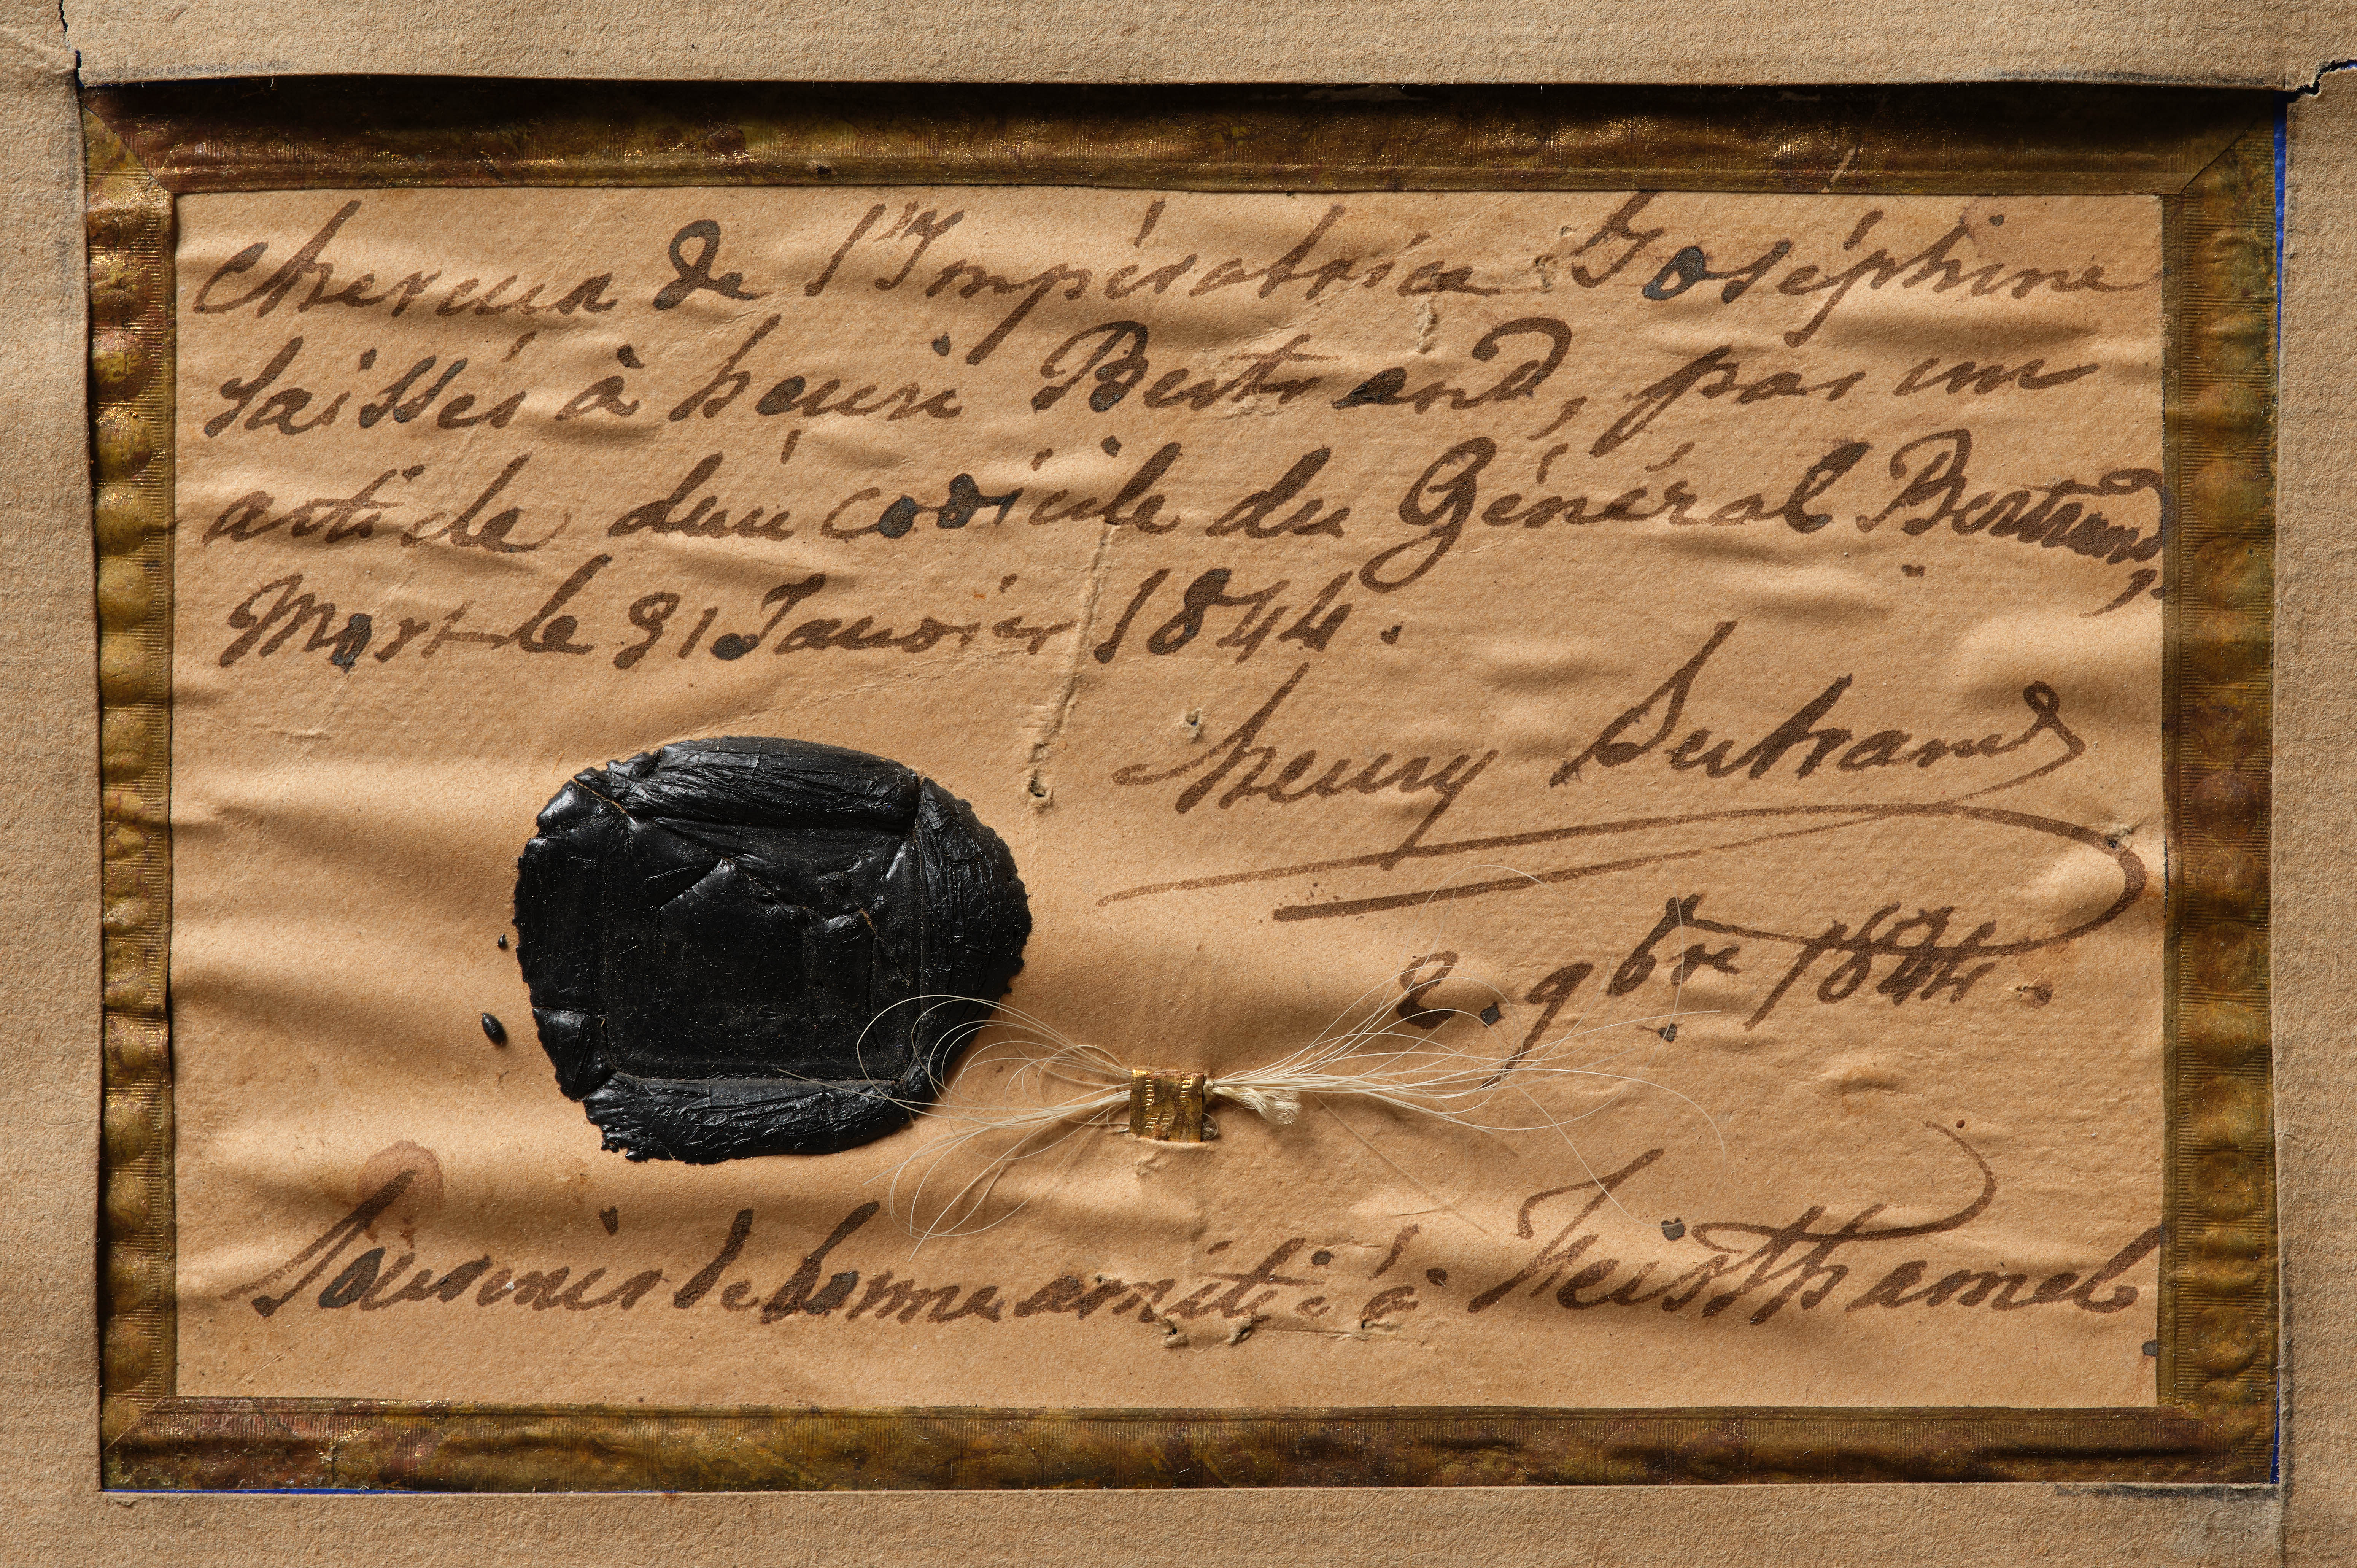 cheveux de l'Impératrice Joséphine
laissés à henri Bertrand, par un
article d'un codicile du Général Bertrand,
Mort le 31 Janvier 1844.
henry Bertrand
2. 9bre 1844.
Souvenir de bonne amitié à